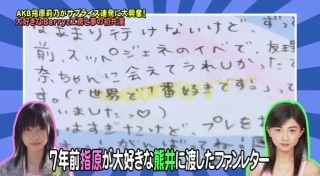 AKB指原莉乃がサプライズ連発に大興奮！
大好きなBerryz工房と夢の初共演
あまり行けないけど
前スッペジェネのイベで、友理
奈ちゃんに会えてうれしかった
です。(世界で1番好きです。)って
いまし
はすぎたけど、プレを
7年前指原が大好きな熊井に渡したファンレター